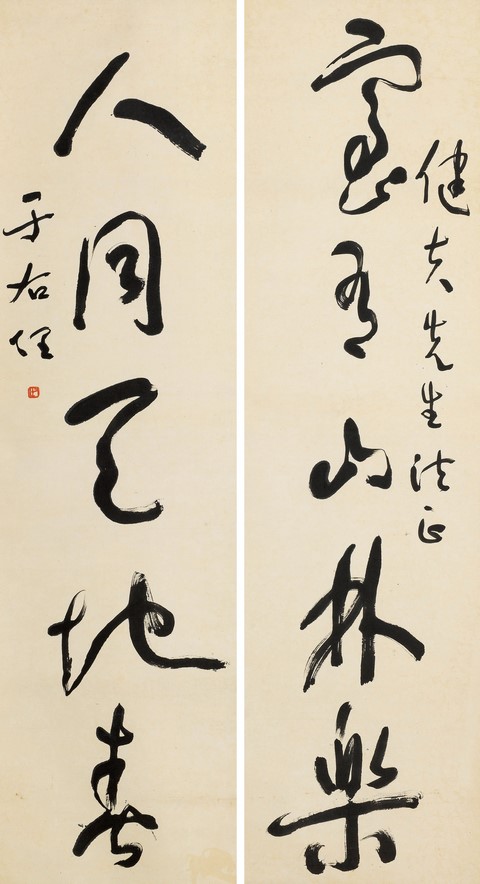 健夫先生法正
室有山林樂
人同天地春
于右任